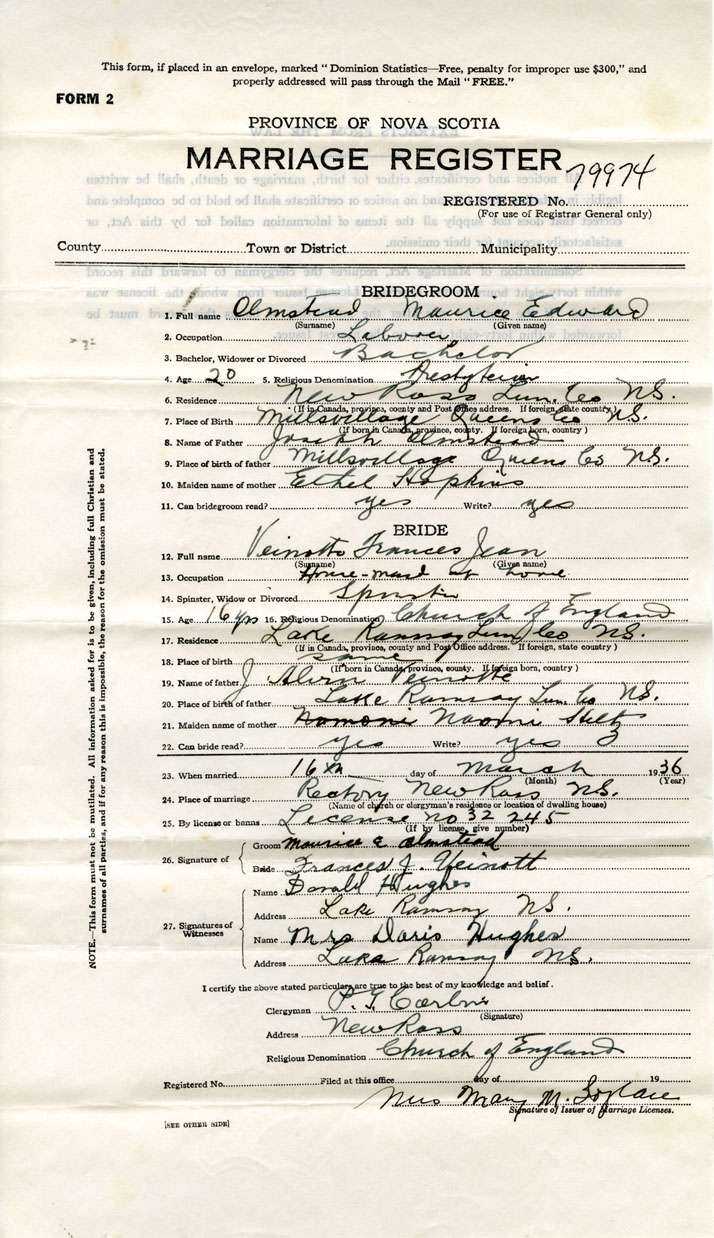 This form, if placed in an envelope, marked "Dominion Statistics—Free, penalty for improper use $300," and
properly addressed will pass through the Mail "FREE."
FORM 2
PROVINCE OF NOVA SCOTIA
MARRIAGE REGISTER
79974
REGISTERED No.
(For use of Registrar General only)
County Town or District Municipality
BRIDEGROOM
1. Full name Olmstead Maurice Edward
(Surname) (Given name)
2. Occupation Laborer
3. Bachelor, Widower or Divorced Bachelor
4. Age 20 5. Religious Denomination
6. Residence New Ross Lun. Co N.S.
(If in Canada, province, county and Post Office address. If foreign, state country)
7. Place of Birth Millsvillage Queens Co N.S.
(If born in Canada, province, county. If foreign born, country)
8. Name of Father Joseph Olmstead
9. Place of birth of father Millsvillage Queens Co N.S.
10. Maiden name of mother Ethel Hopkins
11. Can bridegroom read? yes Write? yes
BRIDE
12. Full name Veinotte Frances Jean
(Surname) (Given name)
13. Occupation House-maid at home
14. Spinster, Widow or Divorced
15. Age 16 yrs 16. Religious Denomination Church of England
17. Residence Lake Ramsay Lun. Co N.S.
(If in Canada, province, county and Post Office address. If foreign, state country)
18. Place of birth same
(If born in Canada, province, county. If foreign born, country)
19. Name of father J Alvin Veinotte
20. Place of birth of father Lake Ramsay Lun. Co N.S.
21. Maiden name of mother Naomi
22. Can bride read? yes Write? yes
23. When married 16th day of March 1936
(Month) (Year)
24. Place of marriage Rectory New Ross N.S.
(Name of church or clergyman's residence or location of dwelling house)
25. By license or banns License no 32 245
(If by license, give number)
26. Signature of
Groom Maurice E Olmstead
Bride Frances J. Veinott
27. Signatures of Witnesses
Name Donald Hughes
Address Lake Ramsay N.S.
Name Mrs Doris Hughes
Address Lake Ramsay N.S.
I certify the above stated particulars are true to the best of my knowledge and belief.
Clergyman
(Signature)
Address New Ross
Religious Denomination Church of England
Registered No. Filed at this office day of 19
Mrs Mary M.
Signature of Issuer of Marriage Licenses.
[SEE OTHER SIDE]
NOTE.—This form must not be mutilated. All information asked for is to be given, including full Christian and
surnames of all parties, and if for any reason this is impossible, the reason for the omission must be stated.